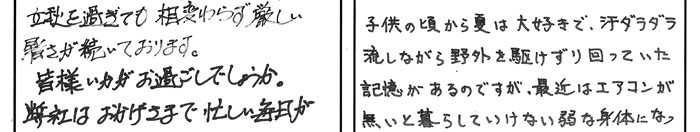 立秋を過ぎても相変わらず厳しい
暑さが続いております。
皆様いかがお過ごしでしょうか。
弊社はおかげさまで忙しい毎日が
子供の頃から夏は大好きで、汗ダラダラ
流しながら野外を駆けずり回っていた
記憶があるのですが、最近はエアコンが
無いと暮らしていけない弱な身体になっ